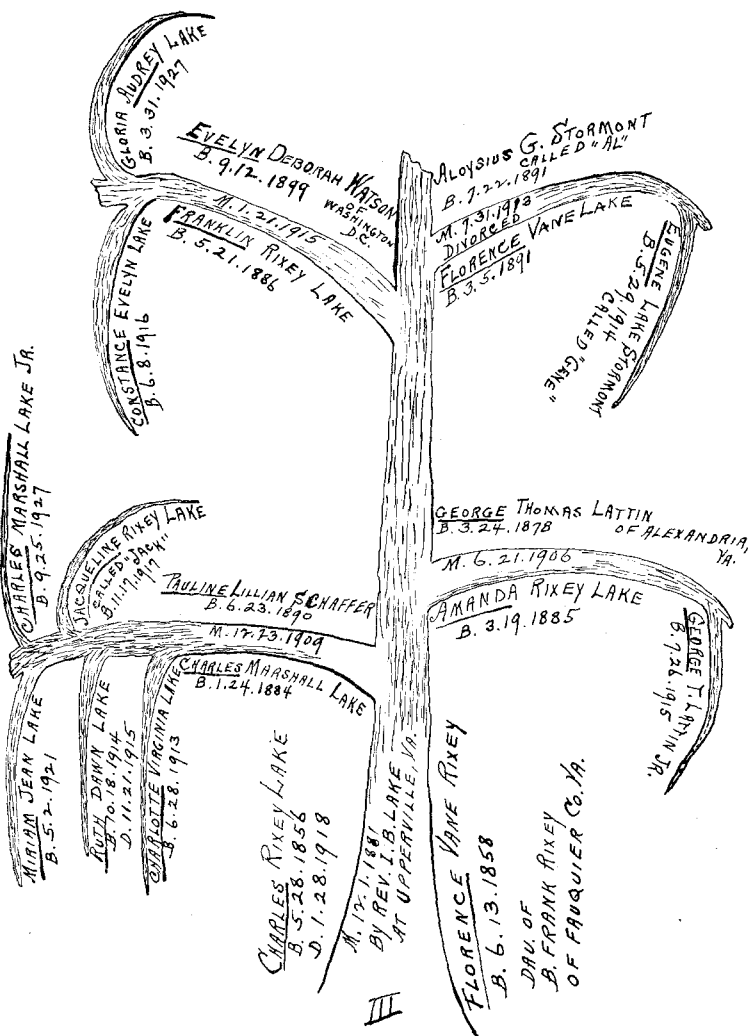 GLORIA AUDREY LAKE
B. 3. 31. 1927
EVELYN DEBORAH WATSON
B. 9. 12. 1899
OF
WASHINGTON
D.C.
M. 1. 21. 1915
FRANKLIN RIXEY LAKE
B. 5. 21. 1886
CONSTANCE EVELYN LAKE
B. 6. 8. 1916
ALOYSIUS G. STORMONT
CALLED "AL"
B. 7. 22. 1891
M. 7. 31. 1913
DIVORCED
FLORENCE VANE LAKE
B. 3. 5. 1891
EUGENE LAKE STORMONT
B. 5. 29. 1914
CALLED "GENE"
CHARLES MARSHALL LAKE JR.
B. 9. 25. 1927
JACQUELINE RIXEY LAKE
CALLED "JACK"
B. 11. 17. 1917
PAULINE LILLIAN SCHAFFER
B. 6. 23. 1890
M. 12. 23. 1909
CHARLES MARSHALL LAKE
B. 1. 24. 1884
GEORGE THOMAS LATTIN
B. 3. 24. 1878
OF ALEXANDRIA,
VA.
M. 6. 21. 1906
AMANDA RIXEY LAKE
B. 3. 19. 1885
GEORGE T. LATTIN JR.
B. 7. 26. 1915
MIRIAM JEAN LAKE
B. 5. 2. 1921
RUTH DAWN LAKE
B. 10. 18. 1914
D. 11. 21. 1915
CHARLOTTE VIRGINIA LAKE
B. 6. 28. 1913
CHARLES RIXEY LAKE
B. 5. 28. 1856
D. 1. 28. 1918
M. 12. 1. 1881
BY REV. I. B. LAKE
AT UPPERVILLE, VA.
FLORENCE VANE RIXEY
B. 6. 13. 1858
DAU. OF
B. FRANK RIXEY
OF FAUQUIER CO. VA.
III